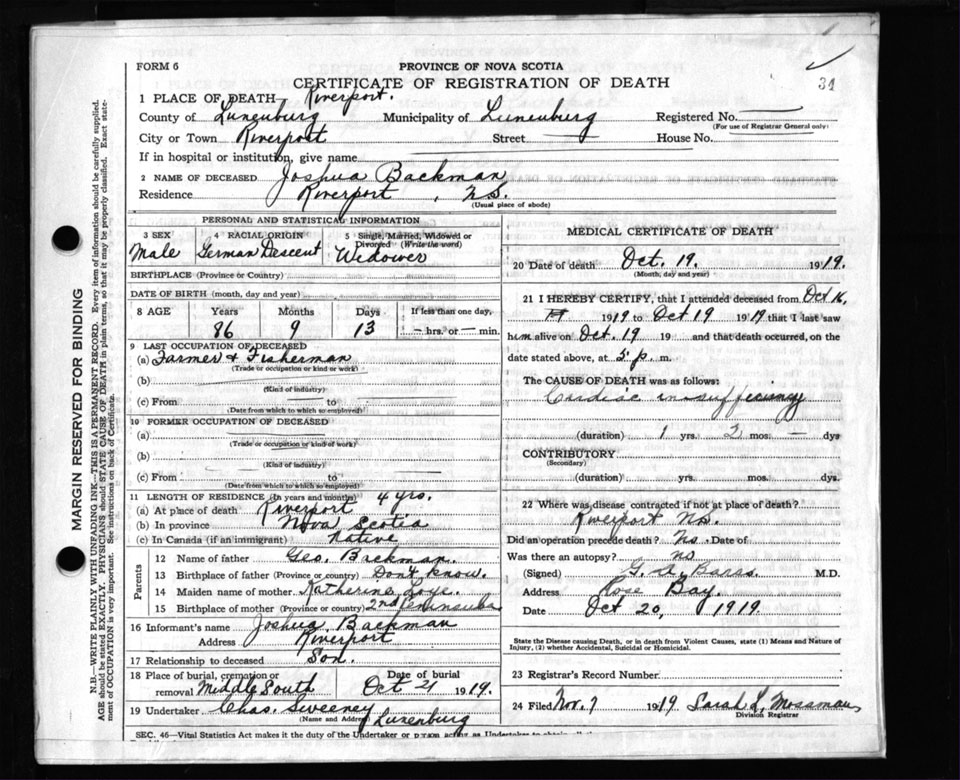 FORM 6
PROVINCE OF NOVA SCOTIA
CERTIFICATE OF REGISTRATION OF DEATH
31
1 PLACE OF DEATH Riverport.
County of Lunenburg Municipality of Lunenburg Registered No.
(For use of Registrar General only)
City or Town Riverport Street House No.
If in hospital or institution, give name
2 NAME OF DECEASED Joshua Backman
Residence Riverport, N.S.
(Usual place of abode)
PERSONAL AND STATISTICAL INFORMATION
3 SEX 4 RACIAL ORIGIN 5 Single, Married, Widowed or Divorced (Write the word)
Male German Descent Widower
BIRTHPLACE (Province or Country)
DATE OF BIRTH (month, day and year)
8 AGE Years Months Days If less than one day,
86 9 13 — hrs. or — min.
9 LAST OCCUPATION OF DECEASED
(a) Farmer & Fisherman
(Trade or occupation or kind or work)
(b)
(Kind of industry)
(c) From to
(Date from which to which so employed)
10 FORMER OCCUPATION OF DECEASED
(a)
(Trade or occupation or kind of work)
(b)
(Kind of industry)
(c) From to
(Date from which to which so employed)
11 LENGTH OF RESIDENCE (In years and months) 4 yrs.
(a) At place of death Riverport
(b) In province Nova Scotia
(c) In Canada (if an immigrant) native
Parents
12 Name of father Geo. Backman.
13 Birthplace of father (Province or country) Don't know.
14 Maiden name of mother Katherine Loye.
15 Birthplace of mother (Province or country) 2nd Peninsula
16 Informant's name Joshua Backman
Address Riverport
17 Relationship to deceased Son.
18 Place of burial, cremation or removal Middle South
Date of burial Oct 21 1919.
19 Undertaker Chas. Sweeney
(Name and Address) Lunenburg
SEC. 46—Vital Statistics Act makes it the duty of the Undertaker or person acting as Undertaker to obtain
MEDICAL CERTIFICATE OF DEATH
20 Date of death Oct. 19. 1919.
(Month, day and year)
21 I HEREBY CERTIFY, that I attended deceased from Oct 16,
1919 to Oct 19 1919 that I last saw
him alive on Oct. 19 19 and that death occurred, on the
date stated above, at 5 p. m.
The CAUSE OF DEATH was as follows:
Cardiac insufficiency
(duration) 1 yrs. 2 mos. — dys
CONTRIBUTORY
(Secondary)
(duration) yrs. mos. dys.
22 Where was disease contracted if not at place of death?
Riverport N.S.
Did an operation precede death? No. Date of
Was there an autopsy? no
(Signed) G. A. Barss. M.D.
Address Rose Bay.
Date Oct 20, 1919.
State the Disease causing Death, or in death from Violent Causes, state (1) Means and Nature of
Injury, (2) whether Accidental, Suicidal or Homicidal.
23 Registrar's Record Number
24 Filed Nov. 7 1919 Sarah L. Mossman
Division Registrar
MARGIN RESERVED FOR BINDING
N.B.—WRITE PLAINLY WITH UNFADING INK—THIS IS A PERMANENT RECORD. Every item of information should be carefully supplied.
AGE should be stated EXACTLY. PHYSICIANS should STATE CAUSE OF DEATH in plain terms, so that it may be properly classified. Exact state-
ment of OCCUPATION is very important. See instructions on back of Certificate.